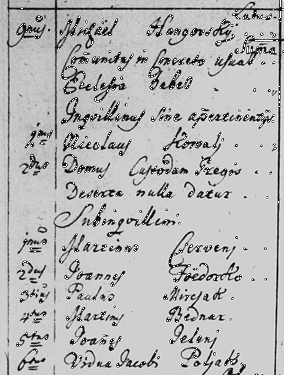 9nus. Michael Hangovszky
Comunitas in Concreto usuat
Ecclesia habet
Inquilinus sine apertinentijs
1mus Nicolaus Kovalj
2dus Domus Custodam Gregis
Deserta nulla datur
Subinquilini
1mus Martinus Cservenj
2dus Joannes Foedorko
3tius Paulus Mircsak
4tus Martinus Bednar
5tus Joanes Jelenj
6tus Vidua Jacobi Poljak